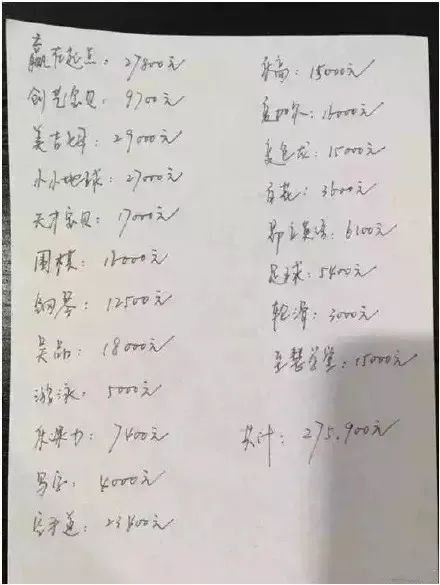 赢在起点：27800元
创艺宝贝：9700元
美吉姆：29000元
小小地球：27000元
天才宝贝：17000元
围棋：16000元
钢琴：12500元
吴品：18000元
游泳：5000元
乐课力：7400元
写字：4000元
23400元
乐高：15000元
16000元
变色龙：15000元
3600元
昂立英语：6100元
足球：5400元
轮滑：3000元
至慧学堂：15000元
共计：275.900元